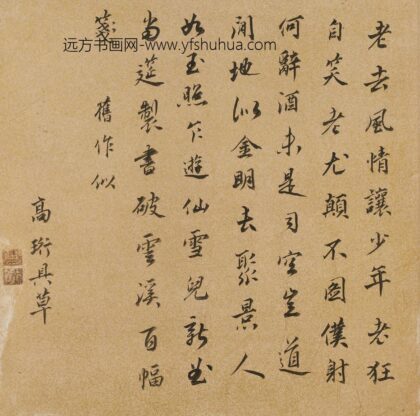 远方书画网-www.yfshuhua.com
老去風情讓少年老狂
自笑老尤顛不圖僕射
何辭酒未是司空豈道
間地似金明去聚景人
如玉照乍遊仙雪兒新
當筵製書破雲溪百幅
箋 舊作似
高珩具草